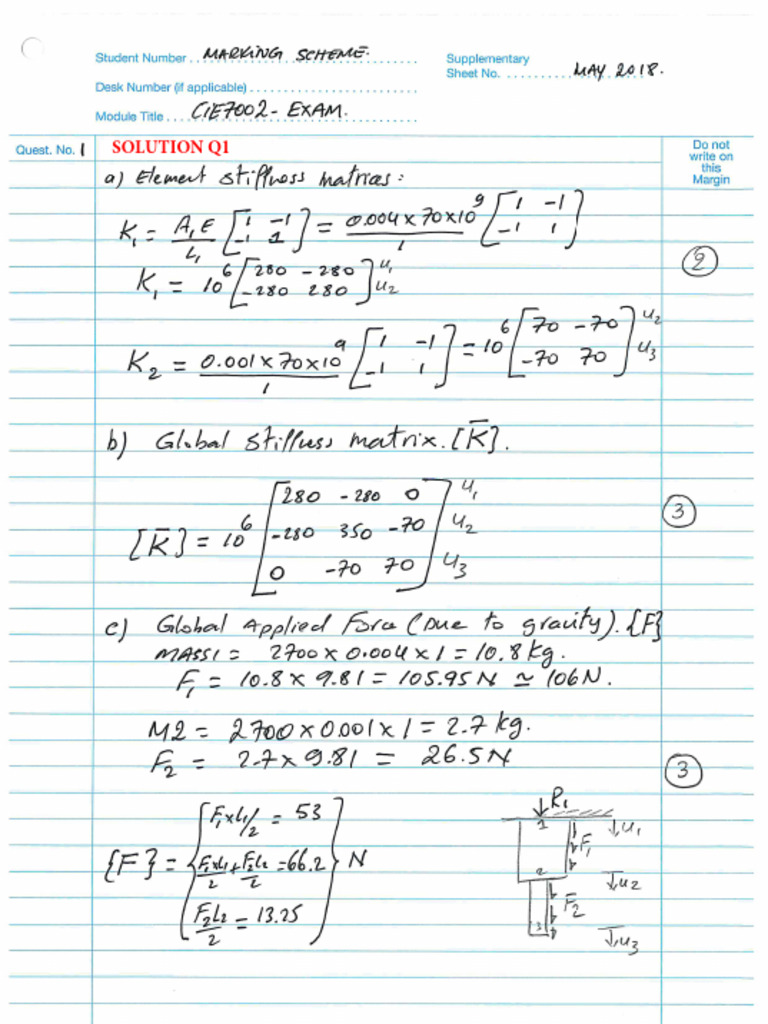 Student Number MARKING SCHEME.
Supplementary
Sheet No. MAY 2018.
Desk Number (if applicable)
Module Title CIE7002 - EXAM.
Quest. No. 1
SOLUTION Q1
Do not
write on
this
Margin
a) Element stiffness matrices:
K₁ = A₁E/L₁ [1 -1; -1 1] = 0.004 x 70 x 10⁹/1 [1 -1; -1 1]
K₁ = 10⁶ [280 -280; -280 280] u₁ u₂
②
K₂ = 0.001 x 70 x 10⁹/1 [1 -1; -1 1] = 10⁶ [70 -70; -70 70] u₂ u₃
b) Global stiffness matrix. [K̄].
[K̄] = 10⁶ [280 -280 0; -280 350 -70; 0 -70 70] u₁ u₂ u₃
③
c) Global Applied Force (Due to gravity). {F}
MASS1 = 2700 x 0.004 x 1 = 10.8 kg.
F₁ = 10.8 x 9.81 = 105.95 N ≃ 106 N.
M2 = 2700 x 0.001 x 1 = 2.7 kg.
F₂ = 2.7 x 9.81 = 26.5 N
③
{F} = {F₁xL₁/2 = 53; F₁xL₁/2 + F₂L₂/2 = 66.2; F₂L₂/2 = 13.25} N
R₁
1
u₁
F₁
2
u₂
F₂
3
u₃